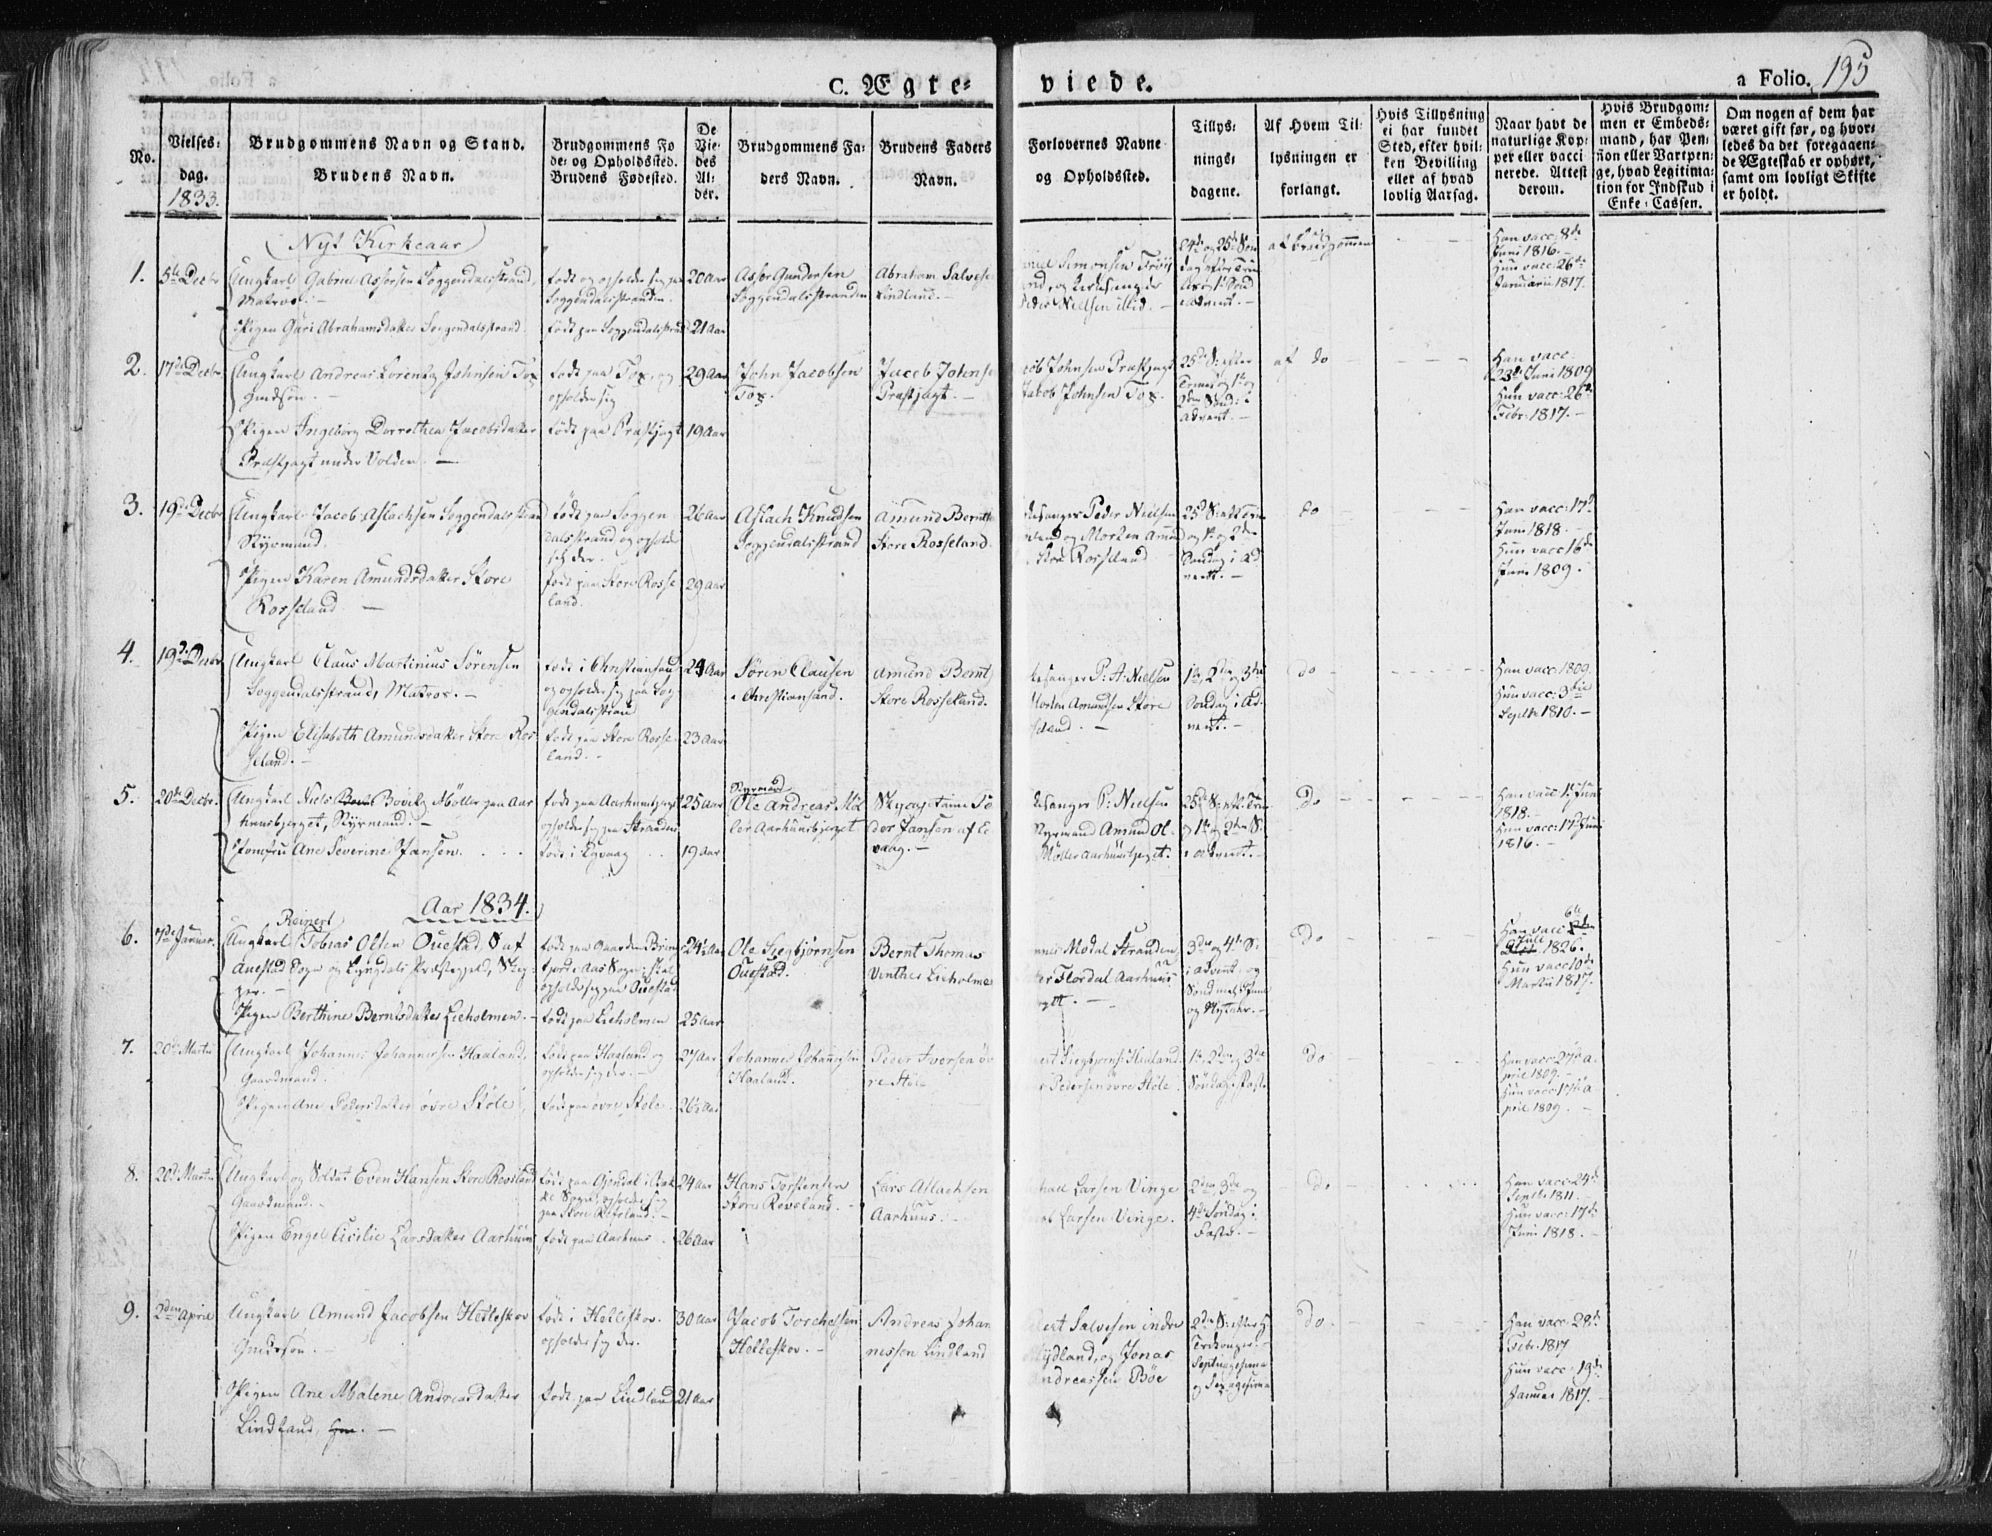 C. Ægte-
viede.
a Folio. 195
No.
Vielses-
dag.
1833.
Brudgommens Navn og Stand.
Brudens Navn.
Brudgommens Fø
de- og Opholdssted.
Brudens Fødested.
De
Vie-
des
Al-
der.
Brudgommens Fa-
ders Navn.
Brudens Faders
Navn.
Forlovernes Navne
og Opholdssted.
Tillys-
nings-
dagene.
Af Hvem Til-
lysningen er
forlangt.
Hvis Tillysning
ei har fundet
Sted, efter hvil-
ken Bevilling
eller af hvad
lovlig Aarsag.
Naar havt de
naturlige Kop-
per eller vacci-
nerede. Attest
derom.
Hvis Brudgom-
men er Embeds-
mand, har Pen-
sion eller Vartpen-
ge, hvad Legitima-
tion for Indskud i
Enke-Cassen.
Om nogen af dem har
været gift før, og hvor-
ledes da det foregaaen-
de Ægteskab er ophørt,
samt om lovligt Skifte
er holdt.
Nyt Kirkeaar
1.
5te Decbr
Ungkarl Gabriel Assersen Soggendalsstrand,
Matros. -
Pigen Guri Abrahamsdatter Soggendalsstrand.
født og opholder sig paa
Soggendalsstranden.
født paa Soggendalsstrand
20 Aar
21 Aar
Asser Gundersen
Soggendalsstranden
Abraham Salvese
Lindland. -
Simonsen
og Kirkesanger
Peder Nielsen ibid. -
24de og 25de Søn
dag efter Trin
og 1ste Sønd
i Advent. -
af Brudgommen
Han vacc: 8de
Juni 1816. -
Hun vacc: 26de
Januarii 1817.
2.
17de Decbr.
Ungkarl Andreas Lorentz Johnsen Tox
Gmdsøn. -
Pigen Ingeborg Dorrothea Jacobsdatter
Præstjagt under Volden. -
født paa Tox, og
opholder sig
født paa Præstjagt
29 Aar
19 Aar
John Jacobsen
Tox.
Jacob Johnse
Præstjagt. -
cob Johnsen Præstjagt
Jakob Johnsen Tox.
25de S: efter
Trinit og 1ste og
2den Sønd: i
Advent. -
af do
Han vacc
23de Juni 1809
Hun vacc: 26de
Febr: 1817. -
3.
19de Decbr
Ungkarl Jacob Aslachsen Soggendalsstrand
Styrmand.
Pigen Karen Amundsdatter Store
Rosseland. -
født paa Soggen
dalsstrand og opholde
sig der.
født paa Store Rosse
land.
26 Aar
29 Aar
Aslach Knudsen
Soggendalsstrand
Amund Berntse
Store Rosseland.
kesanger Peder Nielsen
land og Morten Amund
Store Rosseland
25de S: eft: Trin
og 1ste og 2den
Søndag i Ad
vent. -
do
Han vacc: 17de
Juni 1818. -
Hun vacc 16de
Juni 1809.
4.
19de Decbr
Ungkarl Claus Martinius Sørensen
Soggendalsstrand, Matros. -
Pigen Elisabeth Amundsdatter Store Ros-
seland. -
født i Christiansand
og opholder sig paa Sog
gendalsstrand
født paa Store Rosse-
land. -
24 Aar
23 Aar
Sören Clausen
Christiansand.
Amund Bernt
Store Rosseland.
kesanger P: A: Nielsen
Morten Amundsen Store
seland. -
1ste, 2den og 3die
Søndag i Ad-
vent. -
do
Han vacc: 1809.
Hun vacc: 3die
Septbr 1810. -
5.
20de Decbr.
Ungkarl Niels Bovitz Möller paa Aar
huusbjerget, Styrmand. -
Jomfru Ane Severine Jansen.
født paa Aarhuusbjerget
opholder sig paa Stranden
født i Egvaag
25 Aar
19 Aar
Styrmand
Ole Andreas Möl
ler Aarhuusbjerget
Jansen af E
vaag. -
kesanger P: Nielsen
Styrmand Amund Ol-
Möller Aarhuusbjerget.
25de S: eft: Trin
og 1ste og 2den S:
i Advent. -
Do
Han vacc 1ste Juni
1818. -
Hun vacc: 17de Juni
1816. -
Aar 1834.
6.
7de Januar.
Reinert
Ungkarl Tobias Olsen Ouestad S af
Qvestad Sogn og Lyngdals Præstegjeld, Skip-
per. -
Pigen Berthine Berntsdatter Lieholmen. -
født paa Gaarden
Aas Sogn
opholder sig paa Ouestad
født paa Lieholmen
24½ Aar
25 Aar
Ole Siegbjørnsen
Ouestad.
Bernt Thomas
Vinthes Lieholmen
Modal Stranden
Flordal Aarhuus
get. -
3die og 4de S:
i Advent, og
Sønd mel: Juul
og Nytaar. -
Do
Han vacc 6te
Juli 1826.
Hun vacc 10de
Martii 1817.
7.
20de Martii
Ungkarl Johannes Johannesen Haaland,
Gaardmand.
Pigen Ane Pedersdatter øvre Støle
født paa Haaland og
opholder sig der. -
født paa øvre Støle
27 Aar
26½ Aar
Johannes Johannesen
Haaland.
Peder Iversen øv
re Støle
Siegbjørns: Haaland.
Pedersen øvre Støle.
1ste, 2den og 3die
Søndag i Fast.
Do
Han vacc: 27de A
pril 1809. -
Hun vacc: 17de A
pril 1809. -
8.
20de Martii
Ungkarl og Soldat Even Hansen Store Revsland
Gaardmand. -
Pigen Engel Cicilie Larsdatter Aarhuus
født paa Gyndal i Bak
ke Sogn, opholder sig
paa Store Refsland. -
født paa Aarhuus
24 Aar
26 Aar
Hans Torstensen
Store Revsland. -
Lars Atlachsen
Aarhuus. -
Larsen Vinge
Larsen Vinge.
2den, 3die og
4de Søndag i
Faste. -
do
Han vacc 24de
Septbr 1811.
Hun vacc: 17de
Juni 1818. -
9.
2den April
Ungkarl Amund Jacobsen Hetleskov
Gmdssøn. -
Pigen Ane Malene Andreasdatter
Lindland. -
født i Hetleskov.
opholder sig der.
født paa Lindland
30 Aar
21 Aar
Jacob Torchelsen
Helleskov. -
Andreas Johan
nessen Lindland
lert Salvesen indre
Mydland, og Jonas
Andreassen Bøe
2den S: efter H
Trekonger -
Septuagesima
og Sexagesima
Do.
Han vacc: 28de
Febr. 1817
Hun vacc: 19de
Januar 1817.